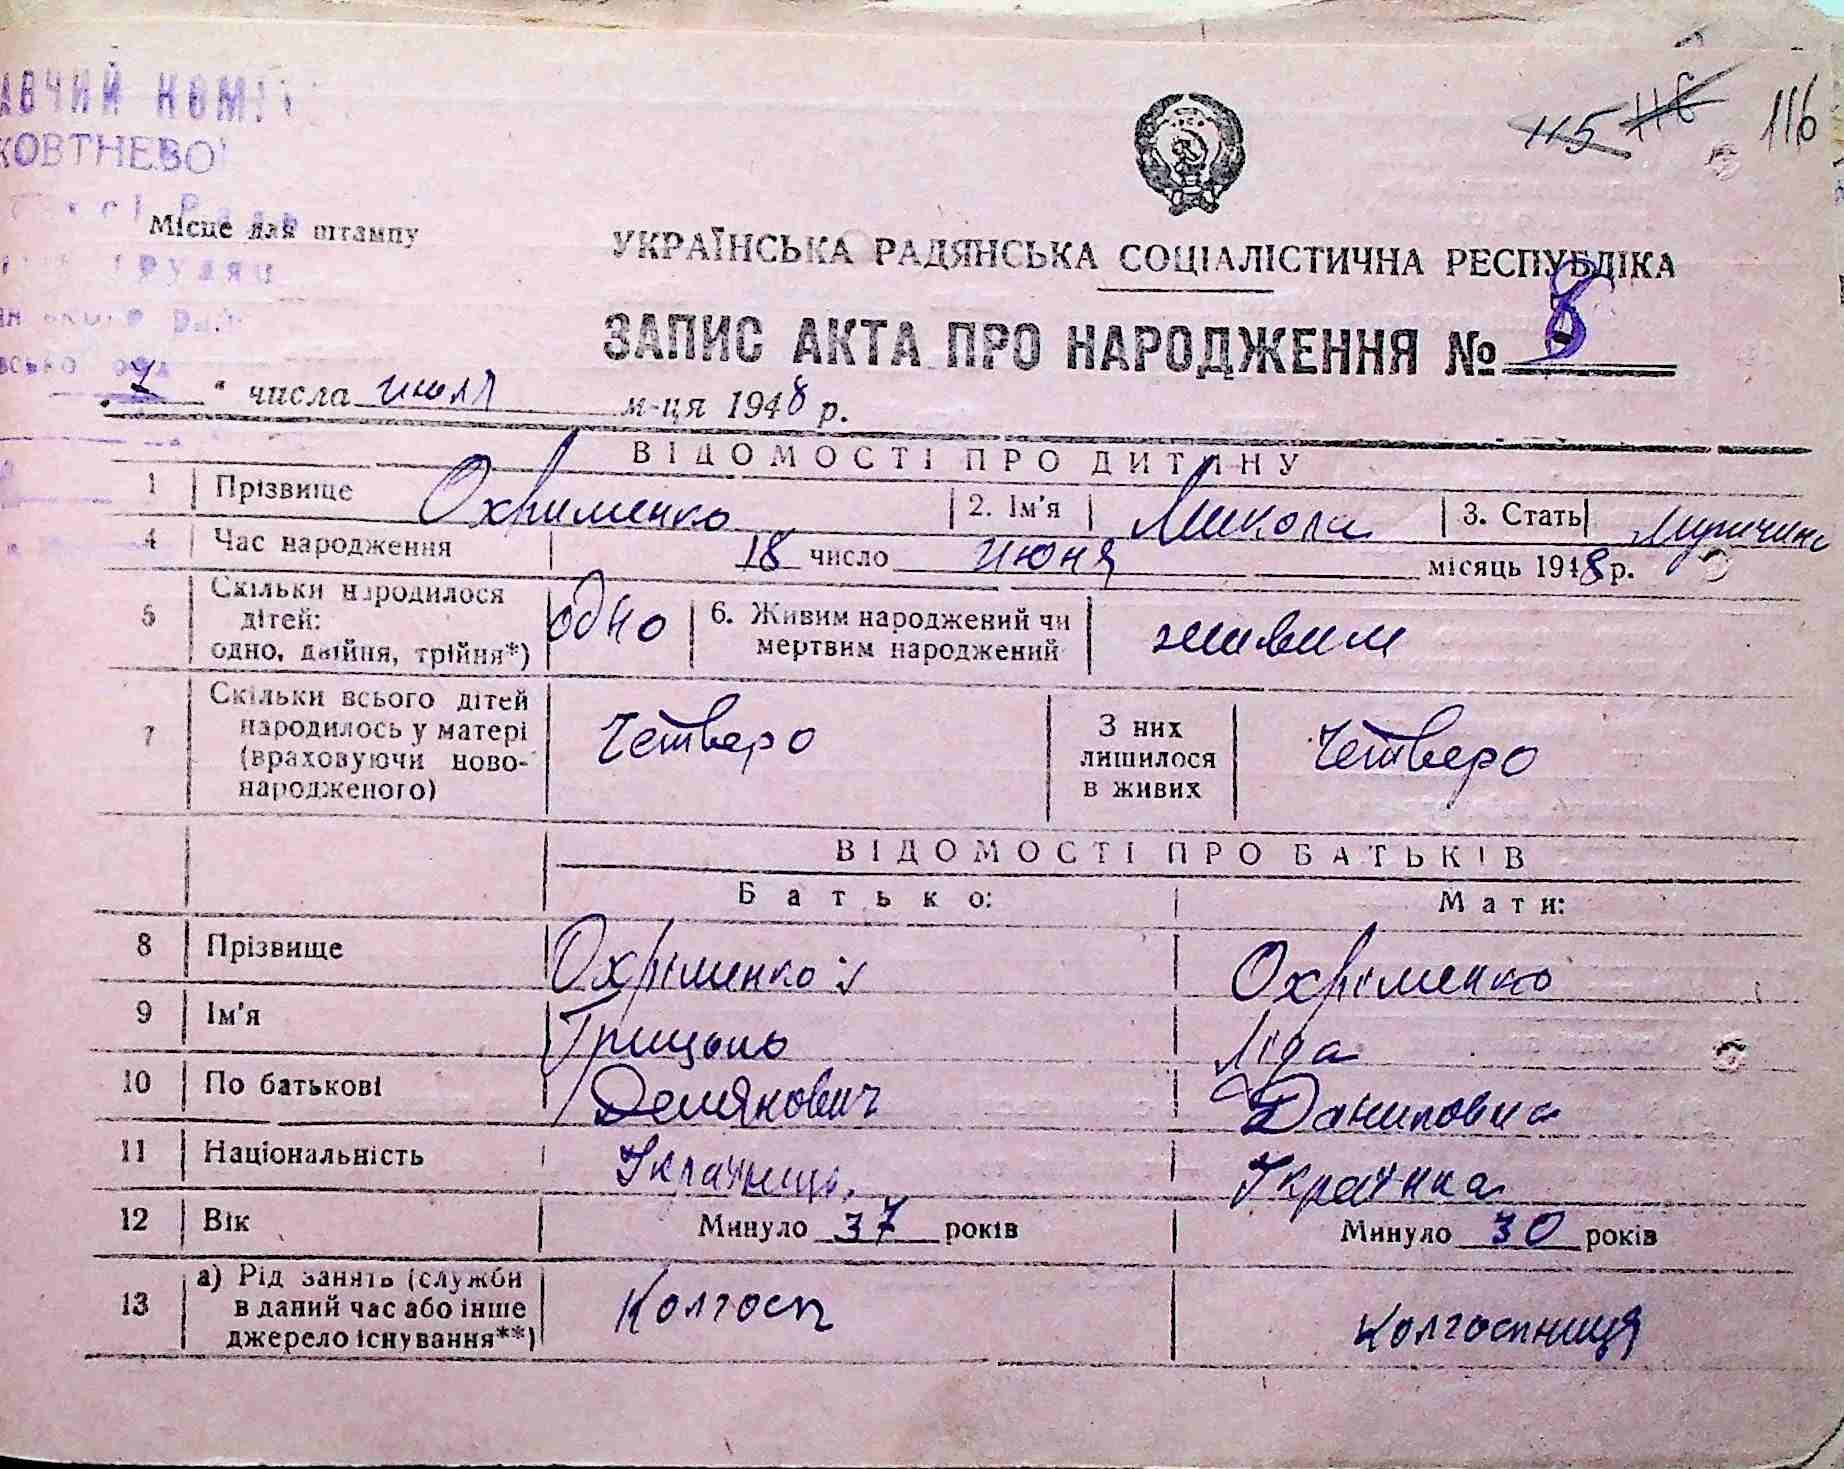 115 116 116
АВЧИЙ КОМІ
ЖОВТНЕВО
Місце для штампу
УКРАЇНСЬКА РАДЯНСЬКА СОЦІАЛІСТИЧНА РЕСПУБЛІКА
ЗАПИС АКТА ПРО НАРОДЖЕННЯ № 8
" числа июля м-ця 1948 р.
ВІДОМОСТІ ПРО ДИТИНУ
1 Прізвище Охрименко 2. Ім'я Микола 3. Стать
4 Час народження 18 число июня місяць 1948 р.
5 Скільки народилося
дітей:
одно, двійня, трійня*) одно 6. Живим народжений чи
мертвим народжений живим
7 Скільки всього дітей
народилось у матері
(враховуючи ново-
народженого) Четверо З них
лишилося
в живих Четверо
ВІДОМОСТІ ПРО БАТЬКІВ
Батько: Мати:
8 Прізвище Охріменко Охріменко
9 Ім'я Грицько Ліда
10 По батькові Демянович Даниловна
11 Національність Українець Українка
12 Вік Минуло 37 років Минуло 30 років
13 а) Рід занять (служби
в даний час або інше
джерело існування**) Колгосп колгоспниця